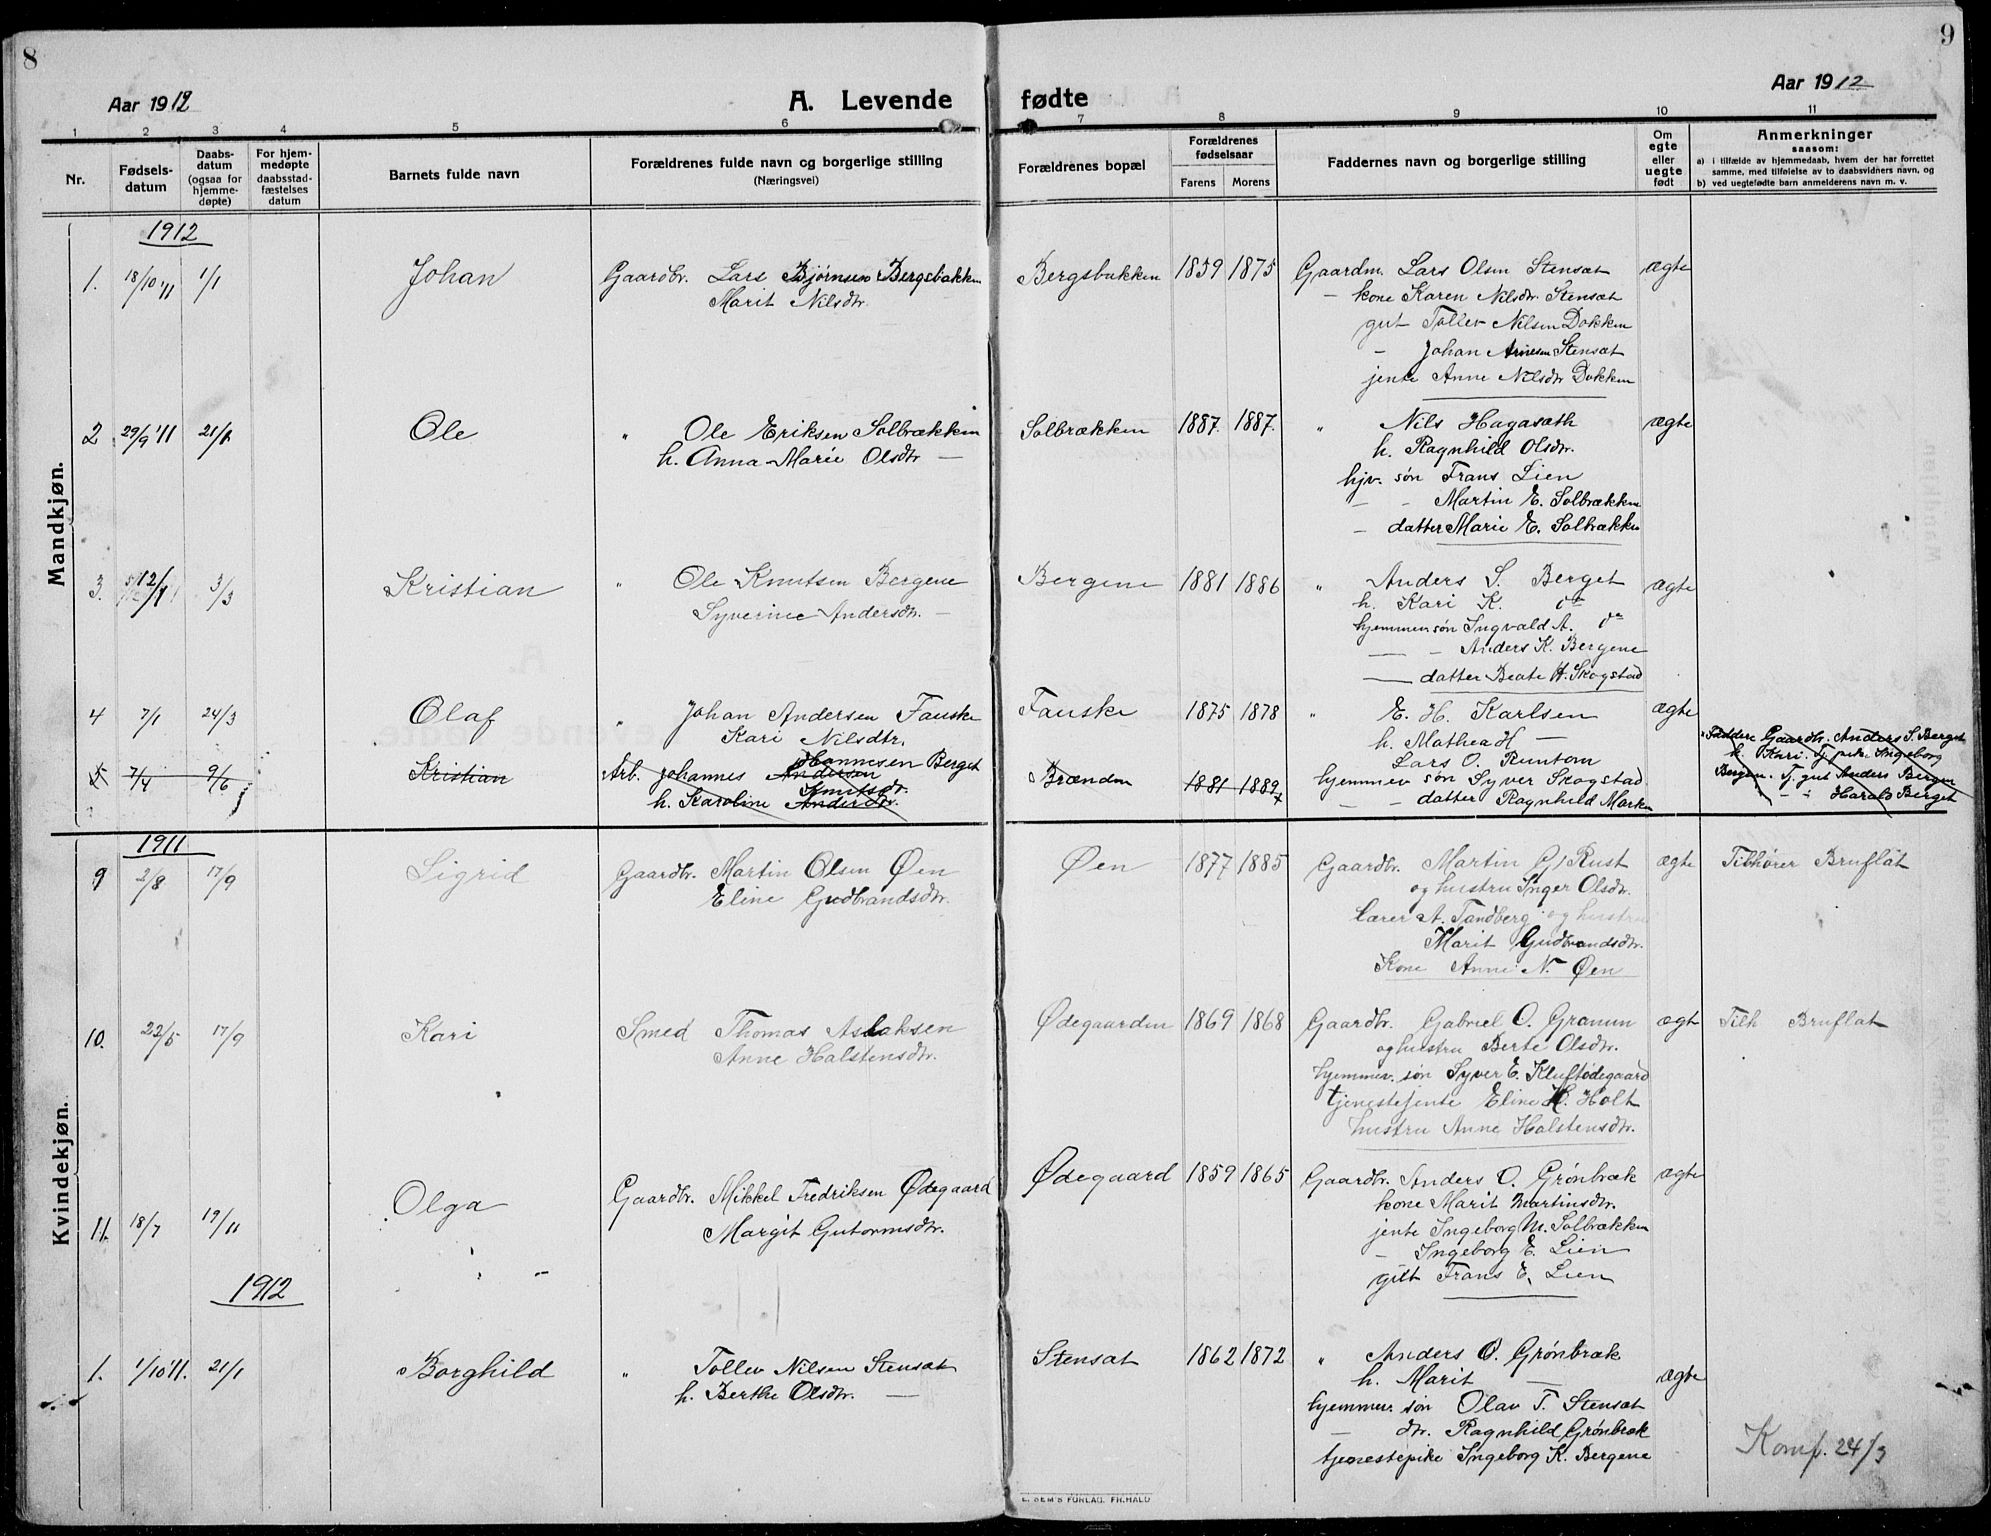 8
9
Aar 1912
A. Levende fødte
Aar 1912
1 2 3 4 5 6 7 8 9 10 11
Nr.
Fødsels-
datum
Daabs-
datum
(ogsaa for
hjemme-
døpte)
For hjem-
medøpte
daabsstad-
fæstelses
datum
Barnets fulde navn
Forældrenes fulde navn og borgerlige stilling
(Næringsvei)
Forældrenes bopæl
Forældrenes
fødselsaar
Farens Morens
Faddernes navn og borgerlige stilling
Om
egte
eller
uegte
født
Anmerkninger
saasom:
a) i tilfælde av hjemmedaab, hvem der har forrettet
samme, med tilføielse av to daabsvidners navn, og
b) ved uegtefødte barn anmelderens navn m. v.
Mandkjøn.
1912
1. 18/10 '11 1/1 Johan Gaardbr. Lars Bjørnsen Bergsbakken Bergsbakken 1859 1875 Gaardm. Lars Olsen Stensæt ægte
Marit Nilsdtr. — kone Karen Nilsdtr. Stensæt
gut Tollev Nilsen Dokken
— Johan Arnesen Stensæt
jente Anne Nilsdtr Dokken
2 29/9 '11 21/1 Ole " Ole Eriksen Solbrækken Solbrækken 1887. 1887. " Nils Hagasæth ægte
h. Anna-Marie Olsdtr — h. Ragnhild Olsdtr.
hjv. søn Frans Lien
— - Martin E. Solbrækken
— datter Marie E. Solbrækken
3. 3/3 Kristian " Ole Knutsen Bergene Bergene 1881 1886 " Anders S. Berget ægte
Syverine Andersdtr. — h. Kari K. do
hjemmev. søn Ingvald A. do
— - Anders K. Bergene
— datter Beate H. Skogstad
4 7/1 24/3 Olaf " Johan Andersen Fauske Fauske 1875 1878 " E. H. Karlsen ægte
Kari Nilsdtr. h. Mathea H —
Lars O. Runtom
5 7/4 9/6 Kristian Arb. Johannes Andersen Johannesen Berget Brænden 1881 1889 hjemmev søn Syver Skogstad
h. Karoline Andersdtr. Knutsdr. — - datter Ragnhild Marken
Faddere Gaardbr. Anders S. Berget
h. Kari. Tj. pike Ingeborg
Bergen. Tj. gut Anders Bergen
" - " Harald Berget
Kvindekjøn.
1911
9 2/8 17/9 Sigrid Gaardbr. Martin Olsen Øen Øen 1877 1885 Gaardbr. Martin Gj Rust ægte Tilhører Bruflat
Eline Gudbrandsdtr. og hustru Inger Olsdtr.
lærer A. Tandberg og hustru
Marit Gudbrandsdtr.
Kone Anne N. Øen
10. 22/5 17/9 Kari Smed Thomas Aslaksen Ødegaarden 1869 1868 Gaardbr. Gabriel O. Granum ægt Tilh Bruflat
Anne Halstensdtr. og hustru Berte Olsdtr.
hjemmev. søn Syver E. Kluftødegaard
tjenestejente Eline H. Holt
hustru Anne Halstensdtr.
11. 18/7 19/11 Olga Gaardbr. Mikkel Fredriksen Ødegaard Ødegaard 1859 1865 Gaardbr. Anders O. Grønbræk ægte
Margit Gutormsdtr. kone Marit Martinsdtr.
jente Ingeborg M. Solbrækken
— Ingeborg E. Lien
gift Frans E. Lien
1912
1. 1/10 '11. 21/1 Borghild " Tollev Nilsen Stensæt Stensæt 1862 1872 " Anders O. Grønbræk ægte
h. Berthe Olsdtr. — h. Marit —
hjemmev. søn Olav T. Stensæt
— dtr. Ragnhild Grønbræk
tjenestepike Ingeborg K. Bergene
Komf. 24/3
E. SEM'S FORLAG, FR.HALD